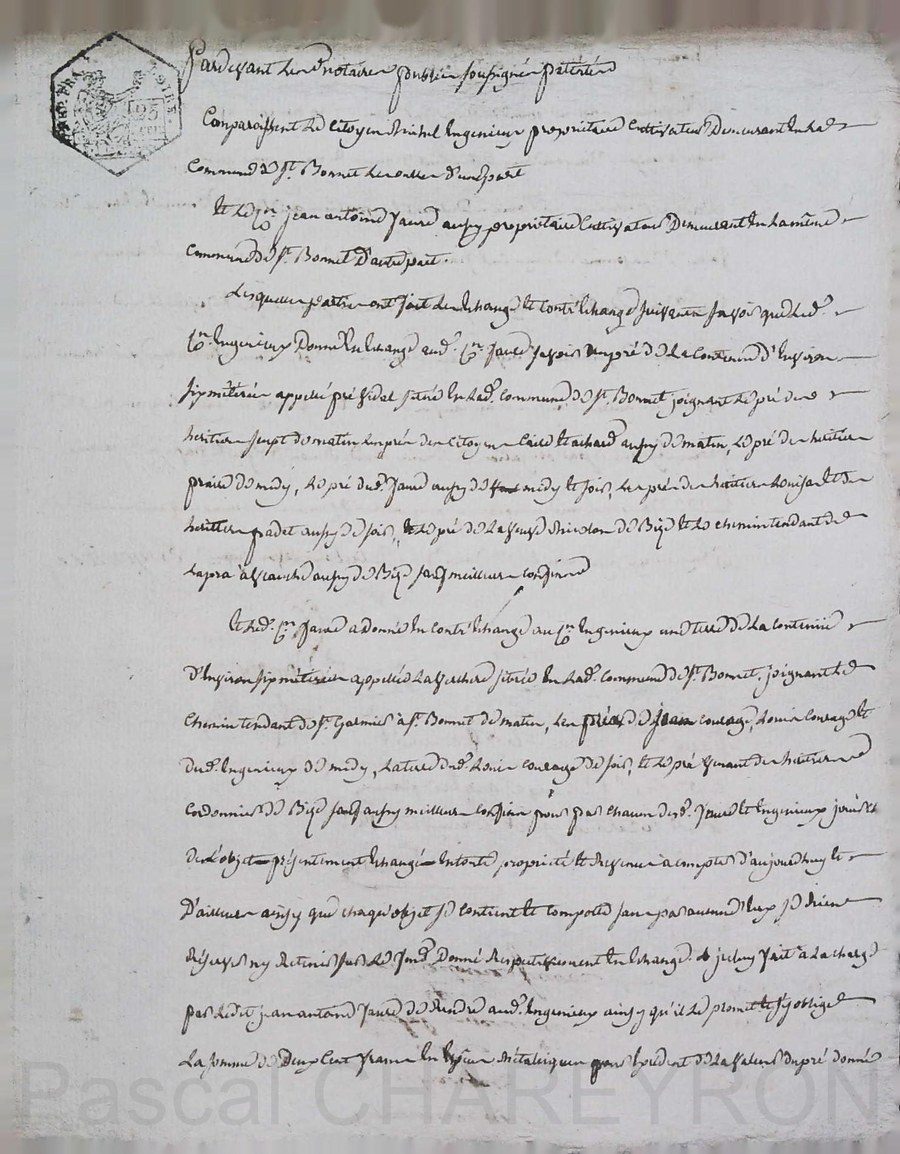 Pardevant les notaires publics soussignés patentés
Comparoissent le Citoyen Michel Ingenieux propriétaire Cultivateur Demeurant en la
Commune de St. Bonnet les oulles d'une part
Et le Cn. jean antoine faure aussy propriétaire Cultivateur Demeurant en la même
Commune de St. Bonnet D'autre part.
Lesquelles parties ont fait les Echange et contr'Echange suivants savoir que led.
Cn. Ingenieux Donne En Echange aud. Cn. faure un pré de la Contenue d'Environ
six mêterées appellé pré fidel situé En lad. commune de St. Bonnet joignant le pré des
heritiers de matin le pré des Citoyens et achard aussy de matin, le pré des heritiers
de midy, le pré dud. faure aussy de midy et soir, les prés des heritiers et des
heritiers fadet aussy de soir, et le pré de la veuve de Bize et le chemin tendant de
aussy de Bize sauf meilleurs confins
Et led. Cn. faure a Donné En contr'échange au Cn. Ingenieux une terre de la contenue
d'Environ six mêterées appellée la verchere située En lad. commune de St. Bonnet, joignant le
chemin tendant de St. Galmier à St. Bonnet de matin, les prés de jean courage, Louis Courage et
dud. Ingenieux de midy, la terre dud. Louis courage de soir, et le pré venant des heritiers
Cordonnier de Bize sauf aussy meilleurs confins pour par chacun desd. faure et Ingenieux jouir
de l'objet présentement Echangé En toute propriété et Revenus à compter d'aujourdhuy et
D'ailleurs ainsy que chaqu'objet se contient et comporte sans par aucun d'eux se Rien
Réserver ny Retenir sur le fond Donné Respectivement En Echange. à la charge
par ledit jean antoine faure de Rendre aud. Ingenieux ainsy qu'il le promet et s'y oblige
La somme de Deux Cent francs En Espèces métaliques pour l'excédent de la valeur du pré donné
Pascal CHAREYRON